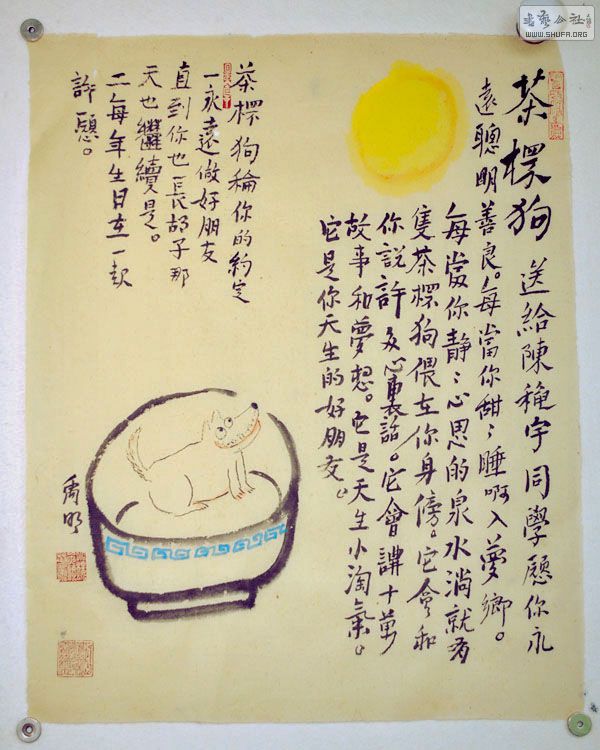 茶楞狗 送給陳宇同學願你永
遠聰明善良。每當你甜〻睡啊入夢鄉。
每當你靜〻心思的泉水淌就有
隻茶楞狗偎在你身傍。它會和
你說許多心裏話。它會講十萬
故事和夢想。它是天生小淘氣。
它是你天生的好朋友。
茶楞狗你的約定
一永遠做好朋友
直到你也長胡子那
天也繼續是。
二每年生日在一起
許願。
禹明
WWW.SHUFA.ORG